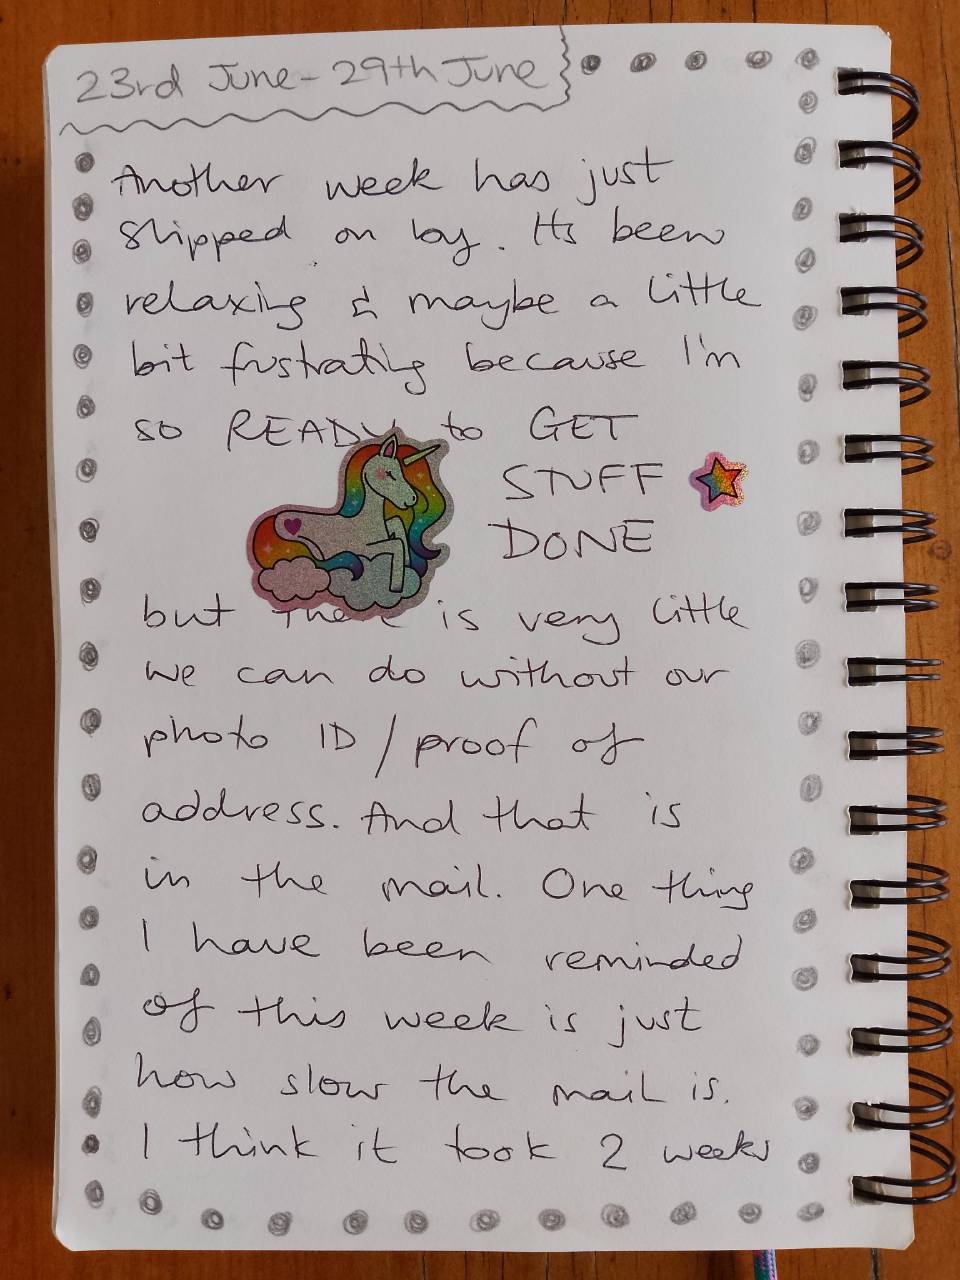 23rd June - 29th June
Another week has just
slipped on by. Its been
relaxing & maybe a little
bit frustrating because I'm
so READY to GET
STUFF
DONE
but there is very little
we can do without our
photo ID / proof of
address. And that is
in the mail. One thing
I have been reminded
of this week is just
how slow the mail is.
I think it took 2 weeks